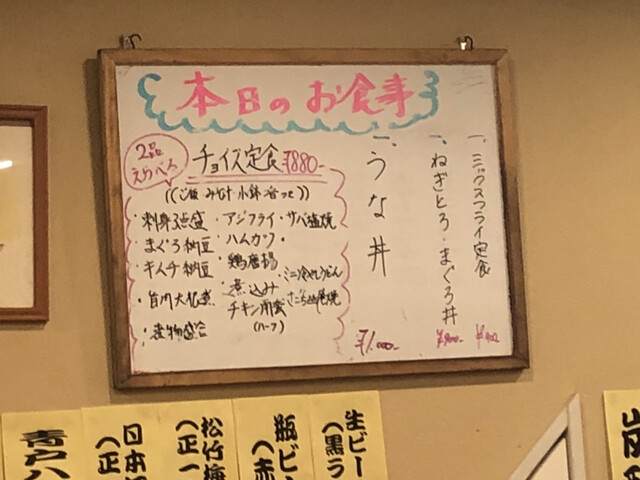 本日のお食事
2品
えらべる
チョイス定食 ¥880-
((ご飯 みそ汁・小鉢 香つき))
・刺身3点盛
・まぐろ納豆
・キムチ納豆
・漬物盛合
・アジフライ
・ハムカツ
・鶏唐揚
・煮込み
チキン南蛮
(ハーフ)
・サバ塩焼
・ミニ冷やしうどん
一、うな丼
¥1,000-
一、ねぎとろ・まぐろ丼
一、ミックスフライ定食
生ビー
〈黒ラ
瓶ビー
〈赤
松竹梅
〈正一
日本
〈正